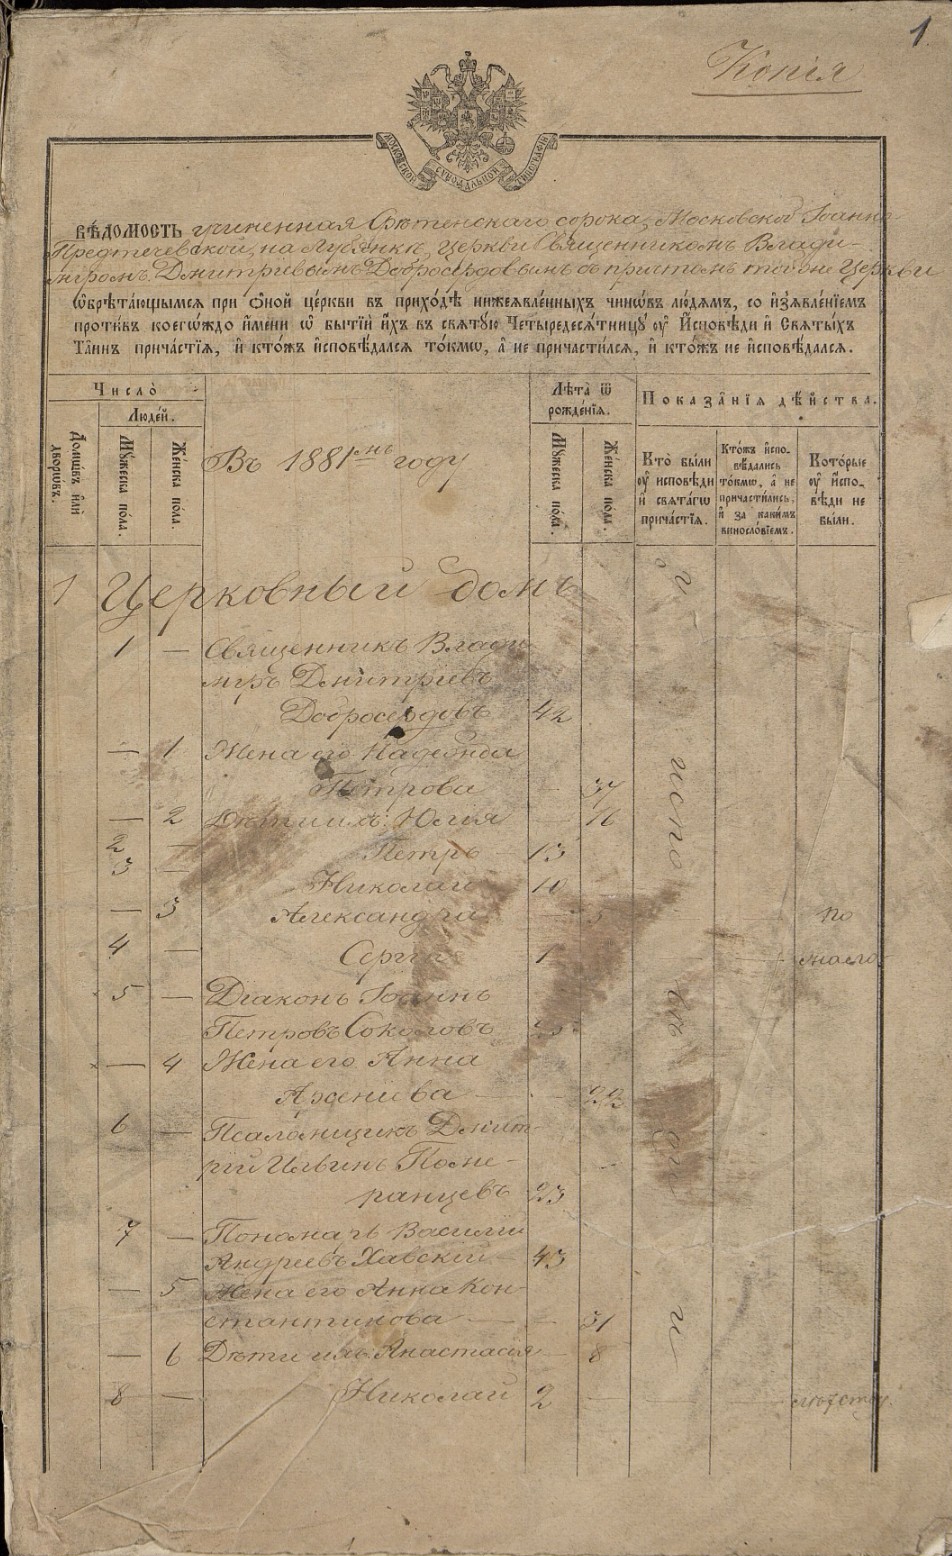 1.
Копія
МОСКОВСКОЙ СѴНОДАЛЬНОЙ ТИПОГРАФІИ
ВѢДОМОСТЬ учиненная Срѣтенскаго сорока, Московской Іоанно-
Предтечевской, на Лубянкѣ, церкви Священникомъ Влади-
миромъ Дмитріевымъ Добросердовымъ съ причтомъ тояже Церкви
ѡ҆брѣта́ющымся при ѻ҆́ной це́ркви въ прихо́дѣ нижеѧвле́нныхъ чинѡ́въ лю́демъ, со и҆з̾ѧвле́нїемъ
проти́въ коегѡ́ждо и҆́мени ѡ҆ бытїи̑ и҆́хъ въ свѧту́ю Четыредесѧ́тницу ᲂу҆ И҆сповѣ́ди и҆ Свѧты́хъ
Та̑инъ прича́стїѧ, и҆ кто́жъ и҆сповѣ́дался то́кмѡ, а҆ не причасти́лся, и҆ кто́жъ не и҆сповѣ́дался.
Число̀
Людей.
Домѡ́въ и҆лѝ дворѡ́въ.
Мꙋ́жеска по́ла.
Же́нска по́ла.
Въ 1881мъ году
Лѣ́та ѿ рожде́нїѧ.
Мꙋ́жеска по́ла.
Же́нска по́ла.
Показа̑нїѧ дѣ́йства.
Кто̀ бы́ли ᲂу҆ исповѣ́ди и҆ свѧта́гѡ прича́стїѧ.
Кто́жъ и҆сповѣ́дались то́кмѡ, а҆ не причасти́лись, и҆ за каки́мъ винословїемъ.
Кото́рые ᲂу҆ и҆сповѣ́ди не бы́ли.
1 Церковный домъ
1 — Священникъ Влади-
миръ Дмитріевъ
Добросердовъ 42
— 1 Жена его Надежда
Петрова — 37
— 2 Дѣти ихъ: Юлія — 16
2 — Петръ — 13
3 — Николай 10
— 3 Александра — 5 — по
4 — Сергій 1 — — малол
5 — Діаконъ Іоаннъ
Петровъ Соколовъ
— 4 Жена его Анна
Арсеніева — — 22
6 — Псаломщикъ Дмит-
рій Ильинъ Поме-
ранцевъ 23
7 — Пономарь Василій
Андреевъ Хавскій — 43
— 5 Жена его Анна Кон-
стантинова — — 31
— 6 Дѣти ихъ Анастасія — 8
8 — Николай 2 —
у испо вѣ ди